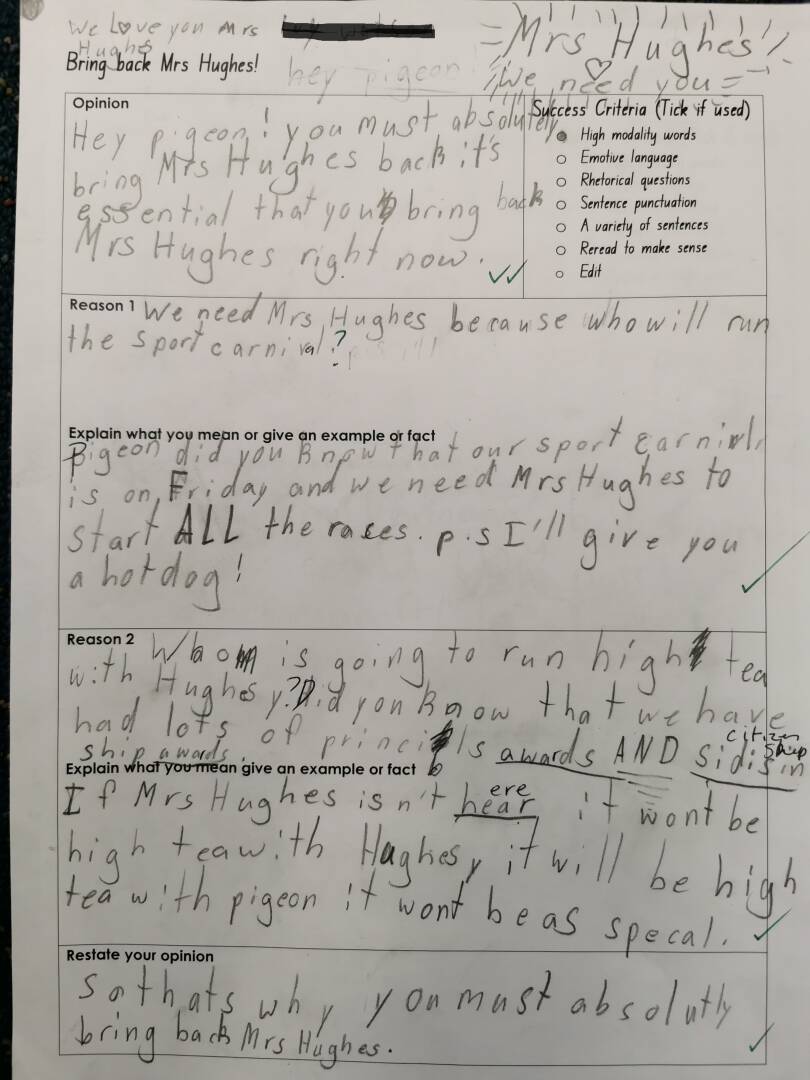 We Love you Mrs
Hughes
Mrs Hughes
Bring back Mrs Hughes!
hey pigeon
We need you
Opinion
Hey pigeon! you must absolutely
bring Mrs Hughes back it's
essential that you bring back
Mrs Hughes right now.
Success Criteria (Tick if used)
High modality words
Emotive language
Rhetorical questions
Sentence punctuation
A variety of sentences
Reread to make sense
Edit
Reason 1 We need Mrs Hughes because who will run
the sport carnival?
Explain what you mean or give an example or fact
Pigeon did you know that our sport carnivl
is on Friday and we need Mrs Hughes to
start ALL the races. p.s I'll give you
a hotdog!
Reason 2 Whom is going to run high tea
with Hughesy? Did you know that we have
had lots of princips awards AND sidisin
citizen
ship
ship awards.
Explain what you mean give an example or fact
If Mrs Hughes isn't hear it wont be
ere
high tea with Hughesy it will be high
tea with pigeon it wont be as specal.
Restate your opinion
So thats why you must absolutly
bring back Mrs Hughes.